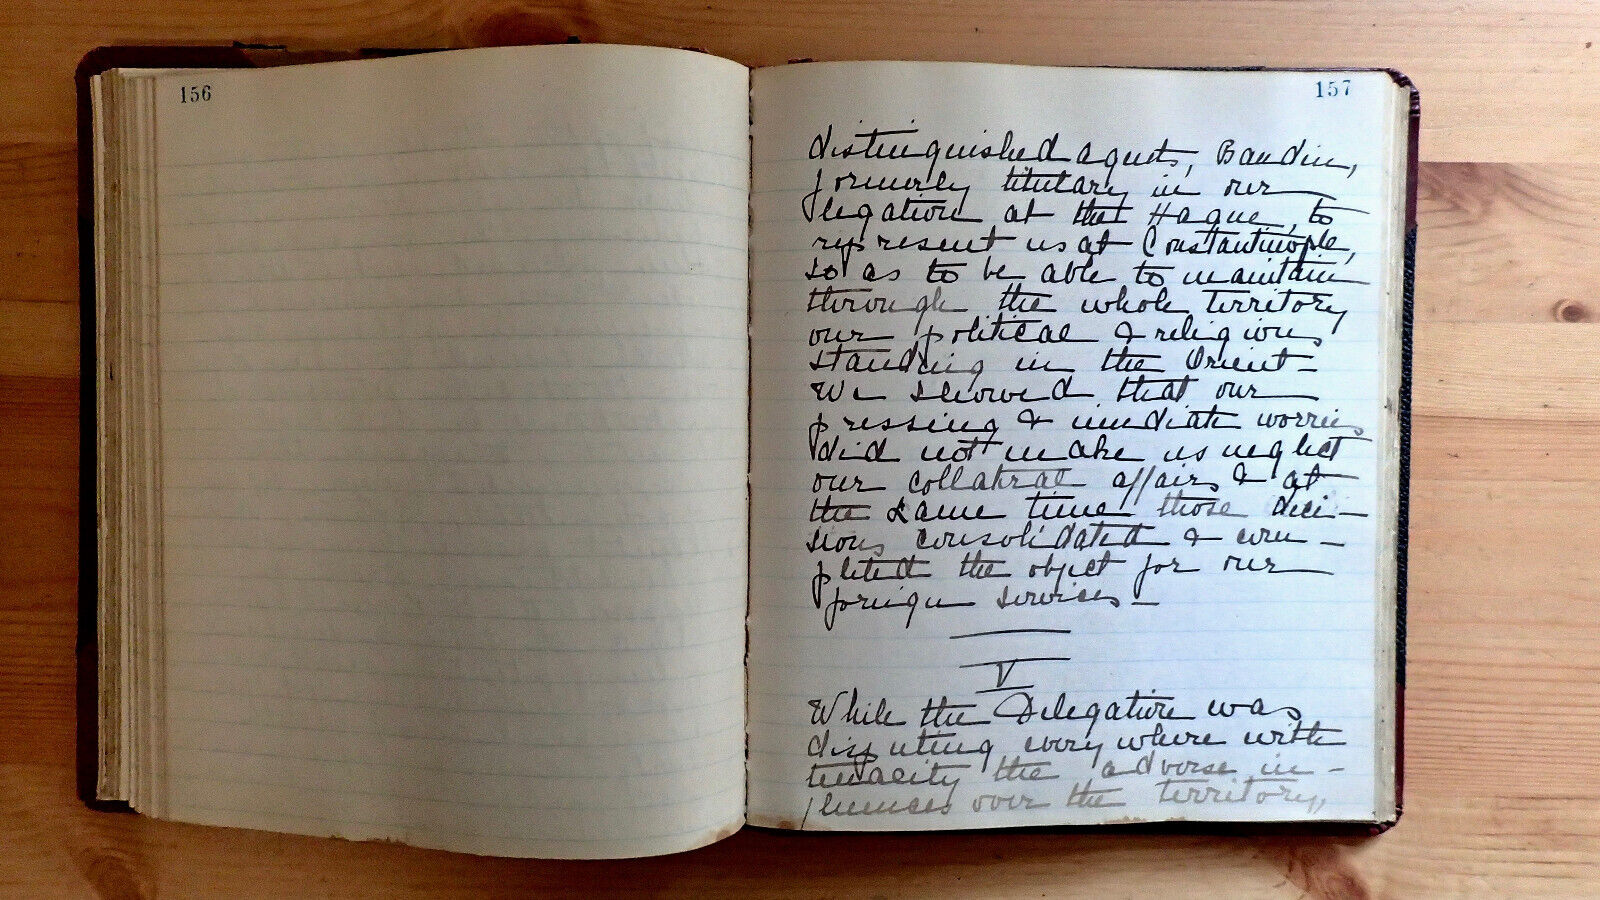 156
157
distinguished agents, Baudin,
formerly titulary in our
legation at the Hague, to
represent us at Constantinople,
so as to be able to maintain
through the whole territory
our political & religious
standing in the Orient -
We showed that our
pressing & imediate worries
did not make us neglect
our collateral affairs & at
the same time those deci-
sions consolidated & com-
pleted the object for our
foreign services -
V
While the Delegation was
disputing every where with
tenacity the adverse in-
fluences over the territory,